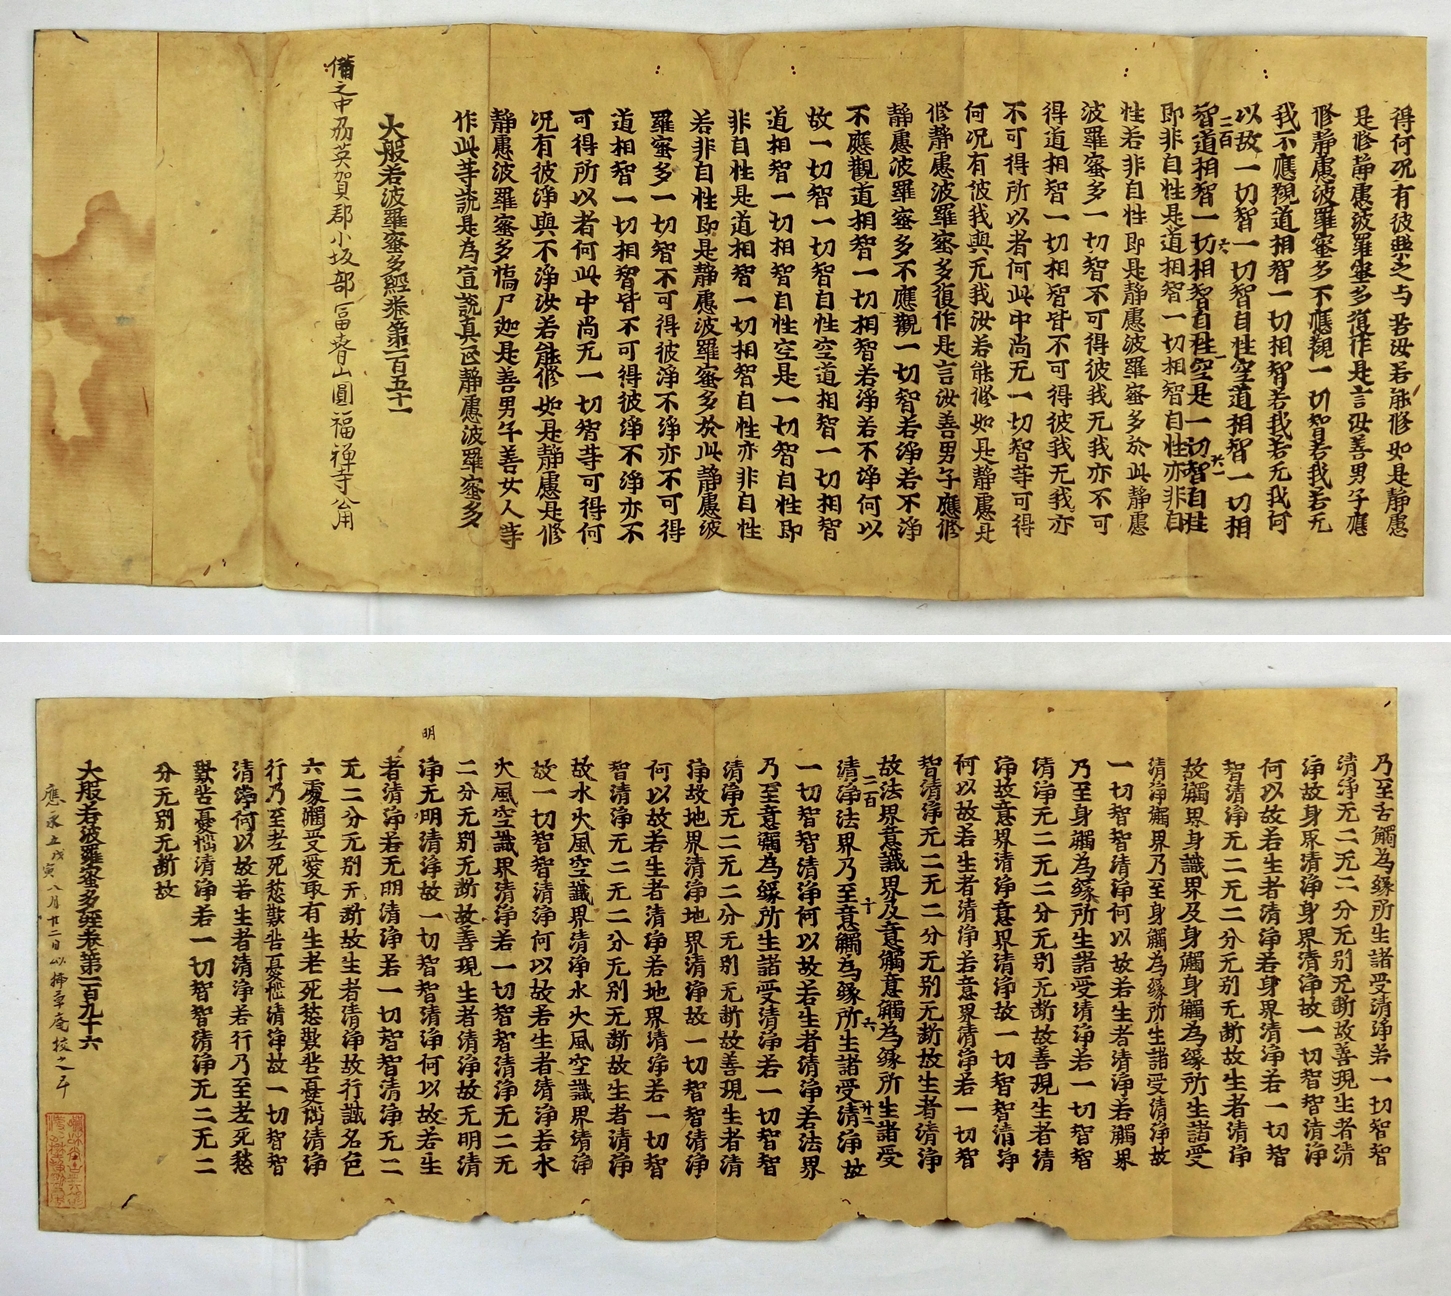 得何况有彼樂之与苦汝若能修如是静慮
是修静慮波羅蜜多復作是言汝善男子應
修静慮波羅蜜多不應觀一切智若我若无
我不應觀道相智一切相智若我若无我何
以故一切智一切智自性空道相智一切相
智道相智一切相智自性空是一切智自性
即非自性是道相智一切相智自性亦非自
性若非自性即是静慮波羅蜜多於此静慮
波羅蜜多一切智不可得彼我无我亦不可
得道相智一切相智皆不可得彼我无我亦
不可得所以者何此中尚无一切智等可得
何况有彼我與无我汝若能修如是静慮是
修静慮波羅蜜多復作是言汝善男子應修
静慮波羅蜜多不應觀一切智若淨若不淨
不應觀道相智一切相智若淨若不淨何以
故一切智一切智自性空道相智一切相智
道相智一切相智自性空是一切智自性即
非自性是道相智一切相智自性亦非自性
若非自性即是静慮波羅蜜多於此静慮波
羅蜜多一切智不可得彼淨不淨亦不可得
道相智一切相智皆不可得彼淨不淨亦不
可得所以者何此中尚无一切智等可得何
况有彼淨與不淨汝若能修如是静慮是修
静慮波羅蜜多憍尸迦是善男子善女人等
作此等說是為宣說真正静慮波羅蜜多
大般若波羅蜜多經卷第一百五十一
備之中刕英賀郡小坂部冨春山圓福禅寺公用
乃至舌觸為縁所生諸受清淨若一切智智
清淨无二无二分无別无断故善現生者清
淨故身界清淨身界清淨故一切智智清淨
何以故若生者清淨若身界清淨若一切智
智清淨无二无二分无別无断故生者清淨
故觸界身識界及身觸身觸為縁所生諸受
清淨觸界乃至身觸為縁所生諸受清淨故
一切智智清淨何以故若生者清淨若觸界
乃至身觸為縁所生諸受清淨若一切智智
清淨无二无二分无別无断故善現生者清
淨故意界清淨意界清淨故一切智智清淨
何以故若生者清淨若意界清淨若一切智
智清淨无二无二分无別无断故生者清淨
故法界意識界及意觸意觸為縁所生諸受
清淨法界乃至意觸為縁所生諸受清淨故
一切智智清淨何以故若生者清淨若法界
乃至意觸為縁所生諸受清淨若一切智智
清淨无二无二分无別无断故善現生者清
淨故地界清淨地界清淨故一切智智清淨
何以故若生者清淨若地界清淨若一切智
智清淨无二无二分无別无断故生者清淨
故水火風空識界清淨水火風空識界清淨
故一切智智清淨何以故若生者清淨若水
火風空識界清淨若一切智智清淨无二无
二分无別无断故善現生者清淨故无明清
明
淨无明清淨故一切智智清淨何以故若生
者清淨若无明清淨若一切智智清淨无二
无二分无別无断故生者清淨故行識名色
六處觸受愛取有生老死愁歎苦憂惱清淨
行乃至老死愁歎苦憂惱清淨故一切智智
清淨何以故若生者清淨若行乃至老死愁
歎苦憂惱清淨若一切智智清淨无二无二
分无別无断故
大般若波羅蜜多經卷第一百九十六
應永五戊寅八月廿二日以掃部庵校之了